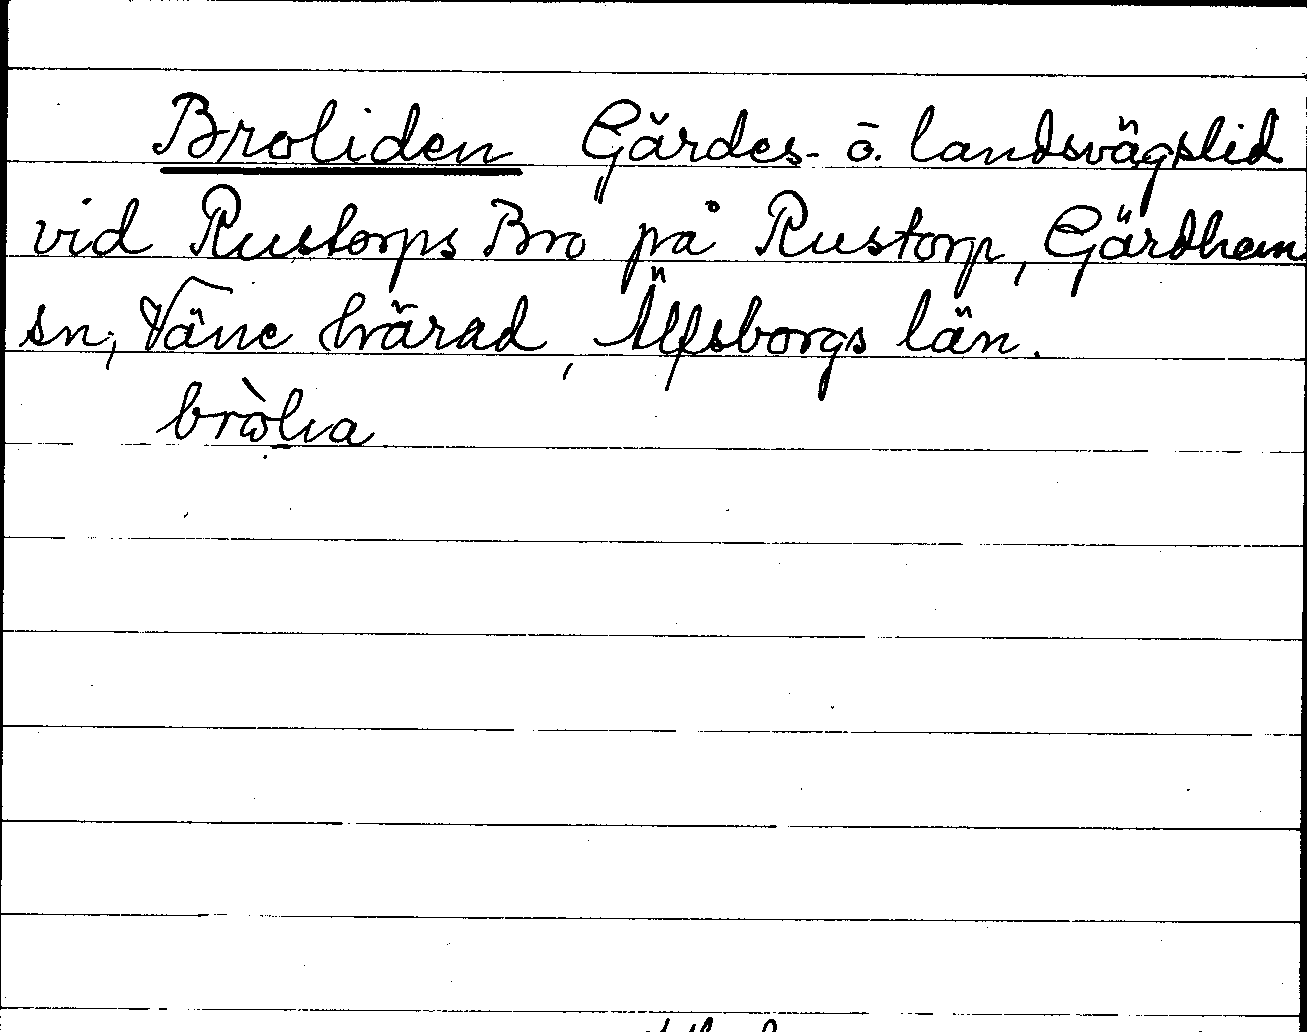 Broliden Gärdes- ō. landsvägslid
vid Rustorps Bro på Rustorp, Gärdhem
sn, Väne härad, Älfsborgs län.